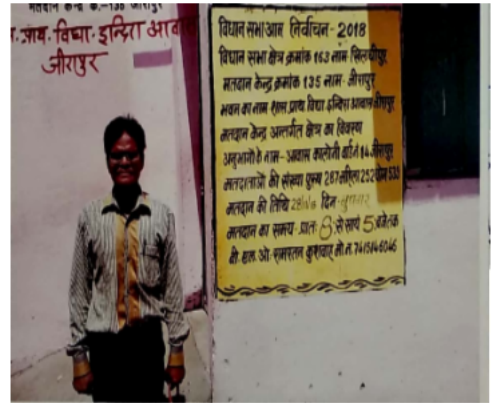 मतदान केन्द्र क्र.-135 जीरापुर
शा. प्राथ. विद्या. इन्दिरा आवास
जीरापुर
विधान सभा आम निर्वाचन - 2018
विधान सभा क्षेत्र क्रमांक 163 नाम- खिलचीपुर
मतदान केन्द्र क्रमांक 135 नाम- जीरापुर
भवन का नाम शास. प्राथ विद्या इन्दिरा आवास जीरापुर
मतदान केन्द्र अन्तर्गत क्षेत्र का विवरण
अनुभागों के नाम- आवास कालोनी वार्ड नं 14 जीरापुर
मतदाताओं की संख्या पुरुष 287 महिला 252 योग 539
मतदान की तिथि दिन- बुधवार
मतदान का समय- प्रातः 8 से सायं 5 बजे तक
बी. एल. ओ- कुशवाह मो. न. 7415146046